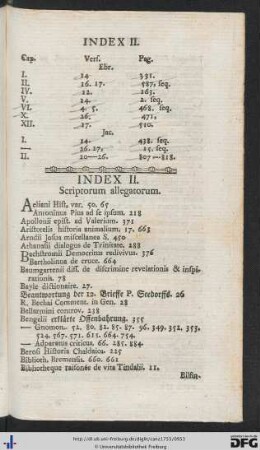 INDEX II.
Cap. Vers. Pag.
Ebr.
I. 14 331.
II. 16. 17. 587. seq.
IV. 12. 163.
V. 14. 2. seq.
VI. 4. 5. 468. seq.
X. 26. 471.
XII. 17. 510.
Jac.
I. 14. 438. seq.
— 26. 27. 15. seq.
II. 20—26. 807—818.
INDEX II.
Scriptorum allegatorum.
Aeliani Hist. var. 50. 65
Antoninus Pius ad se ipsum. 218
Apollonii epist. ad Valerium. 371
Aristotelis historia animalium. 17. 663
Arndii Josin miscellanea S. 450
Athanasii dialogus de Trinitate. 288
Bachstromii Democritus redivivus. 376
Bartholinus de cruce. 664
Baumgartenii diss. de discrimine revelationis & inspi-
rationis. 78
Bayle dictionaire. 27.
Beantwortung der 12. Brieffe P. Seedorffs. 26
R. Bechai Comment. in Gen. 18
Bellarmini controv. 218
Bengelii erklärte Offenbahrung. 355
— Gnomon. 52. 80. 82. 85. 87. 96. 349. 352. 353.
524. 567. 571. 615. 664. 754.
— Adparatus criticus. 66. 285. 884.
Berosi Historia Chaldaica. 225
Biblioth. Bremensis. 660. 661
Bibliotheque raisonée de vita Tindalii. 11.
Bilfin-
http://dl.ub.uni-freiburg.de/diglit/canz1751/0853
© Universitätsbibliothek Freiburg
gefördert durch
DFG